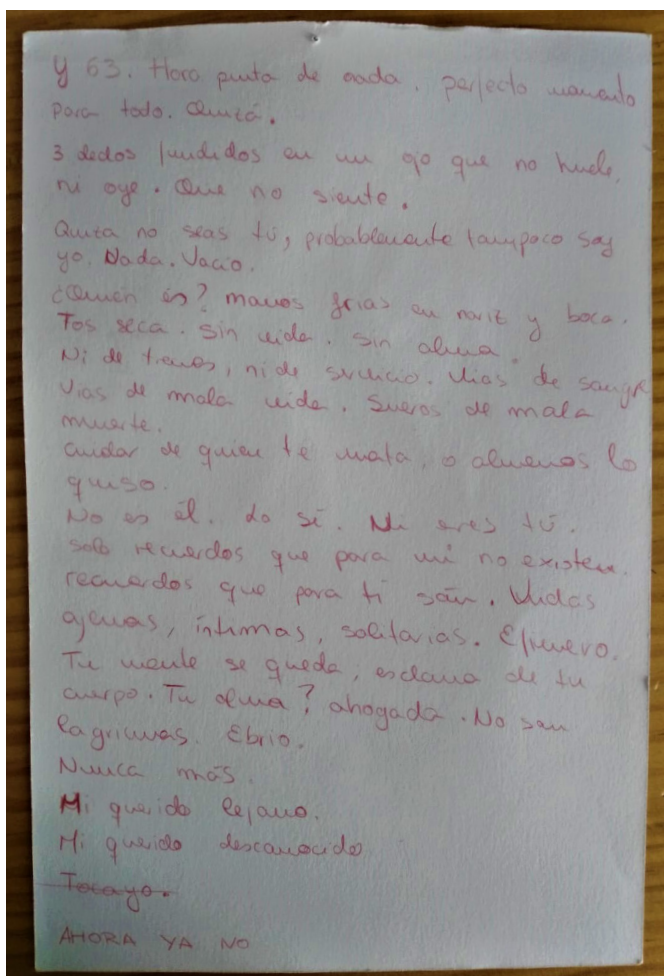 Y 63. Hora punta de nada. perfecto momento
para todo. Quizá.
3 dedos fundidos en un ojo que no huele,
ni oye. Que no siente.
Quiza no seas tú, probablemente tampoco soy
yo. Nada. Vacio.
¿Quién es? manos frias en nariz y boca.
Tos seca. Sin vida. Sin alma.
Ni de trenes, ni de servicio. Vias de sangre
Vias de mala vida. Sueros de mala
muerte.
Cuidar de quien te mata, o almenos lo
quiso.
No es él. Lo sé. Ni eres tú.
Solo recuerdos que para mi no existen.
recuerdos que para ti són. Vidas
ajenas, íntimas, solitarias. Efimero.
Tu mente se queda, esclava de tu
cuerpo. Tu alma? ahogada. No son
lagrimas. Ebrio.
Nunca más.
Mi querido lejano.
Mi querido desconocido
Tocayo.
AHORA YA NO